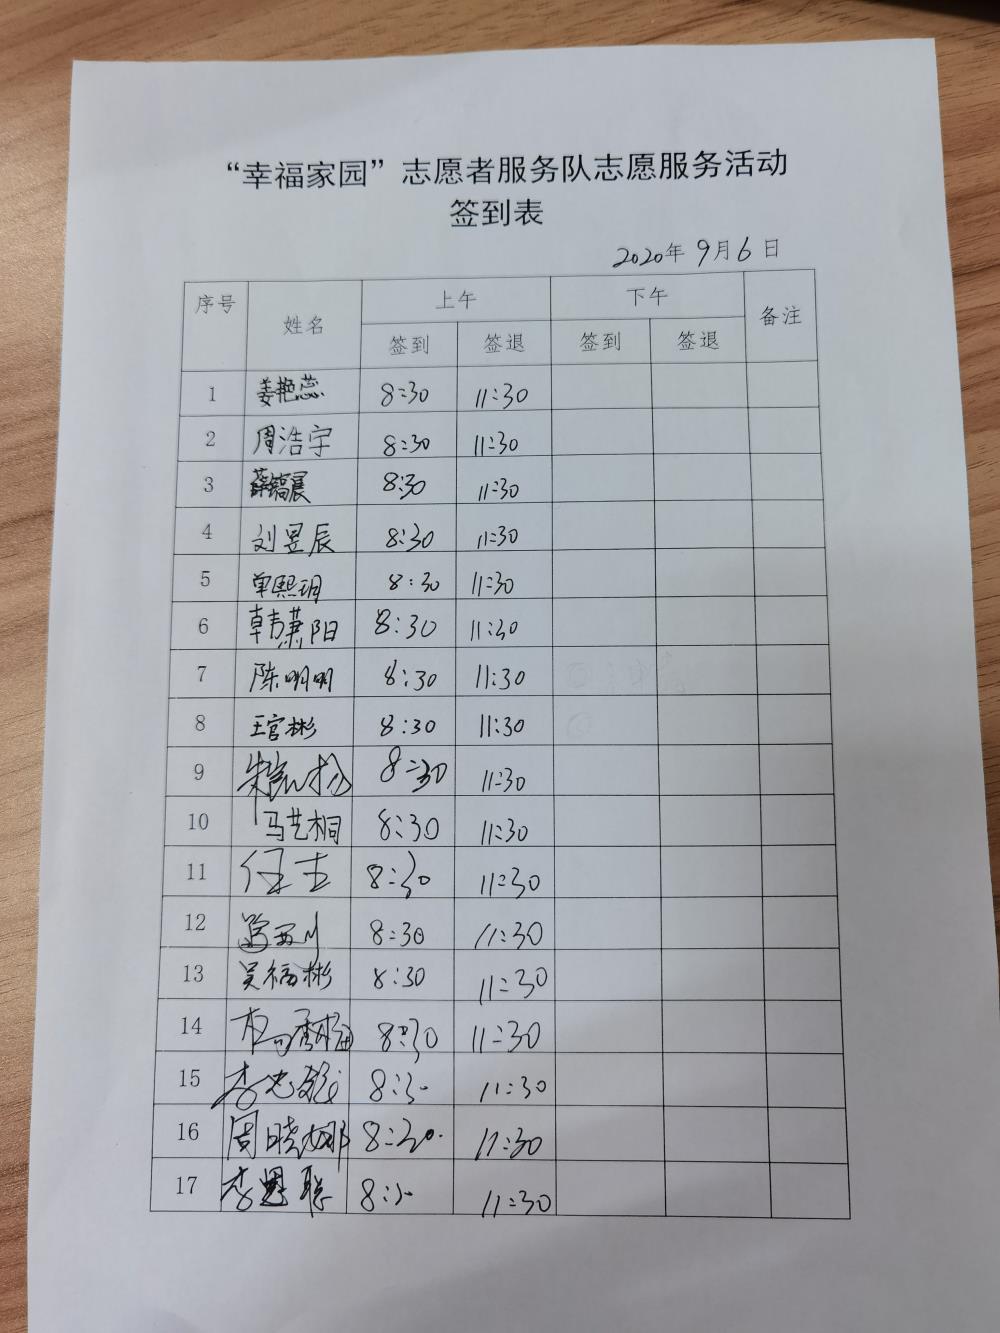 “幸福家园”志愿者服务队志愿服务活动
签到表
2020年9月6日
序号 姓名 上午 下午 备注
签到 签退 签到 签退
1 姜艳蕊 8:30 11:30
2 周浩宇 8:30 11:30
3 8:30 11:30
4 刘昱辰 8:30 11:30
5 单熙玥 8:30 11:30
6 韩萧阳 8:30 11:30
7 陈明明 8:30 11:30
8 王官彬 8:30 11:30
9 8:30 11:30
10 马艺桐 8:30 11:30
11 8:30 11:30
12 8:30 11:30
13 吴福彬 8:30 11:30
14 8:30 11:30
15 8:30 11:30
16 周晓娜 8:30 11:30
17 8:30 11:30